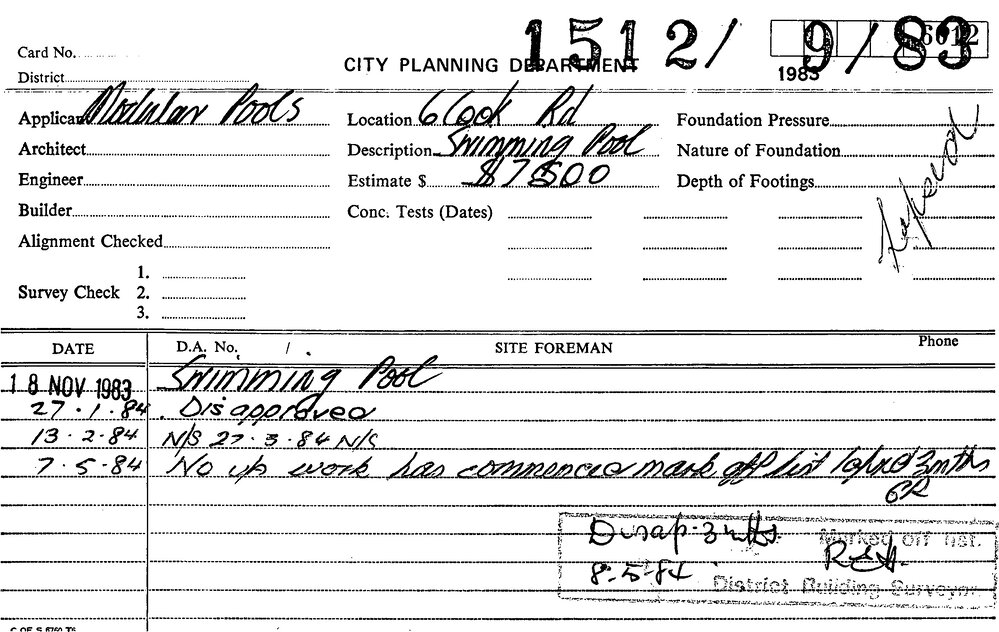 1512/ 9/83
6012
Card No.
CITY PLANNING DEPARTMENT
1983
District
Applicant Modular Pools
Location 6 Cook Rd
Foundation Pressure
Architect
Description Swimming Pool
Nature of Foundation
Engineer
Estimate $ $7500
Depth of Footings
Builder
Conc. Tests (Dates)
Alignment Checked
Survey Check 1.
2.
3.
DATE D.A. No. / . SITE FOREMAN Phone
18 NOV 1983 Swimming Pool
27.1.84. Disapproved
13.2.84 N/S 27.3.84 N/S
7.5.84 No work has commenced mark off list 3mths
GR
Disap 3mths Marked off list.
8.5.84 District Building Surveyor.
C OF S 6760 T6